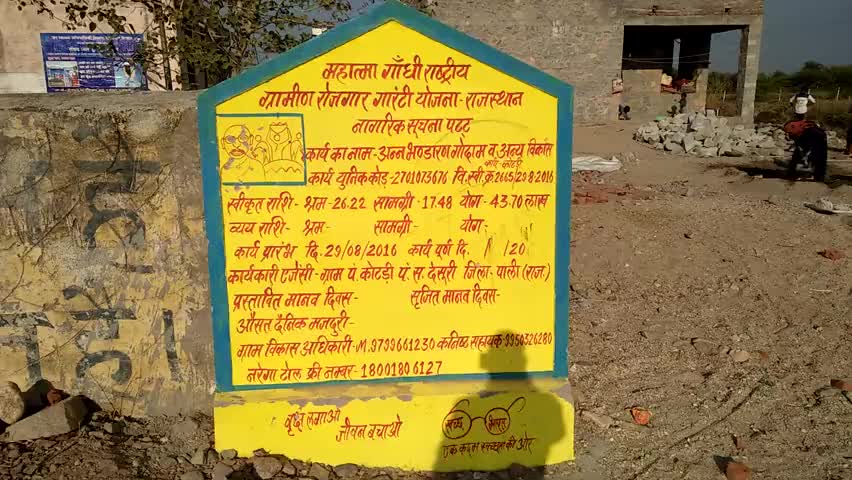 महात्मा गाँधी राष्ट्रीय
ग्रामीण रोजगार गारंटी योजना - राजस्थान
नागरिक सूचना पटट
कार्य का नाम - अन्न भण्डारण गोदाम व अन्य विकास
कार्य - कोटडी
कार्य युनिक कोड़ - 2701073676 वि. स्वी. क्र. 2665/20-8-2016
स्वीकृत राशि - श्रम - 26.22 सामग्री - 17.48 योग - 43.70 लाख
व्यय राशि - श्रम - सामग्री - योग -
कार्य प्रारंभ दि. 29/08/2016 कार्य पूर्ण दि. / /20
कार्यकारी एजेंसी - ग्राम पं. कोटड़ी पं. स. देसूरी जिला - पाली (राज.)
प्रस्तावित मानव दिवस - सृजित मानव दिवस -
औसत दैनिक मजदुरी -
ग्राम विकास अधिकारी - M. 9799661230 कनिष्ठ सहायक - 9950526280
नरेगा टोल फ्री नम्बर - 18001806127
वृक्ष लगाओ
जीवन बचाओ
स्वच्छ भारत
एक कदम स्वच्छता की ओर